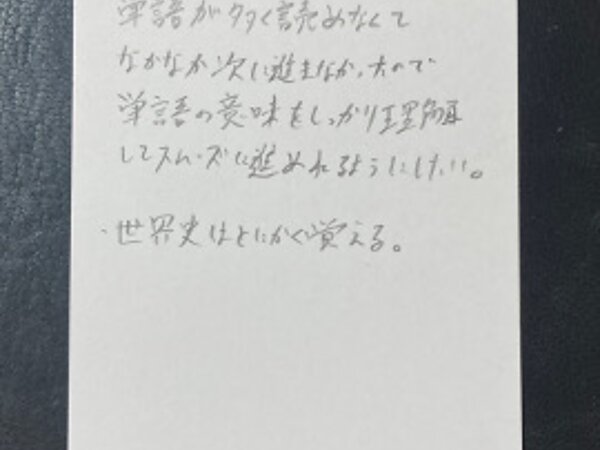 単語が多く読めなくて
なかなか次に進まなかったので
単語の意味もしっかり理解
してスムーズに進めれるようにしたい。
・世界史はとにかく覚える。